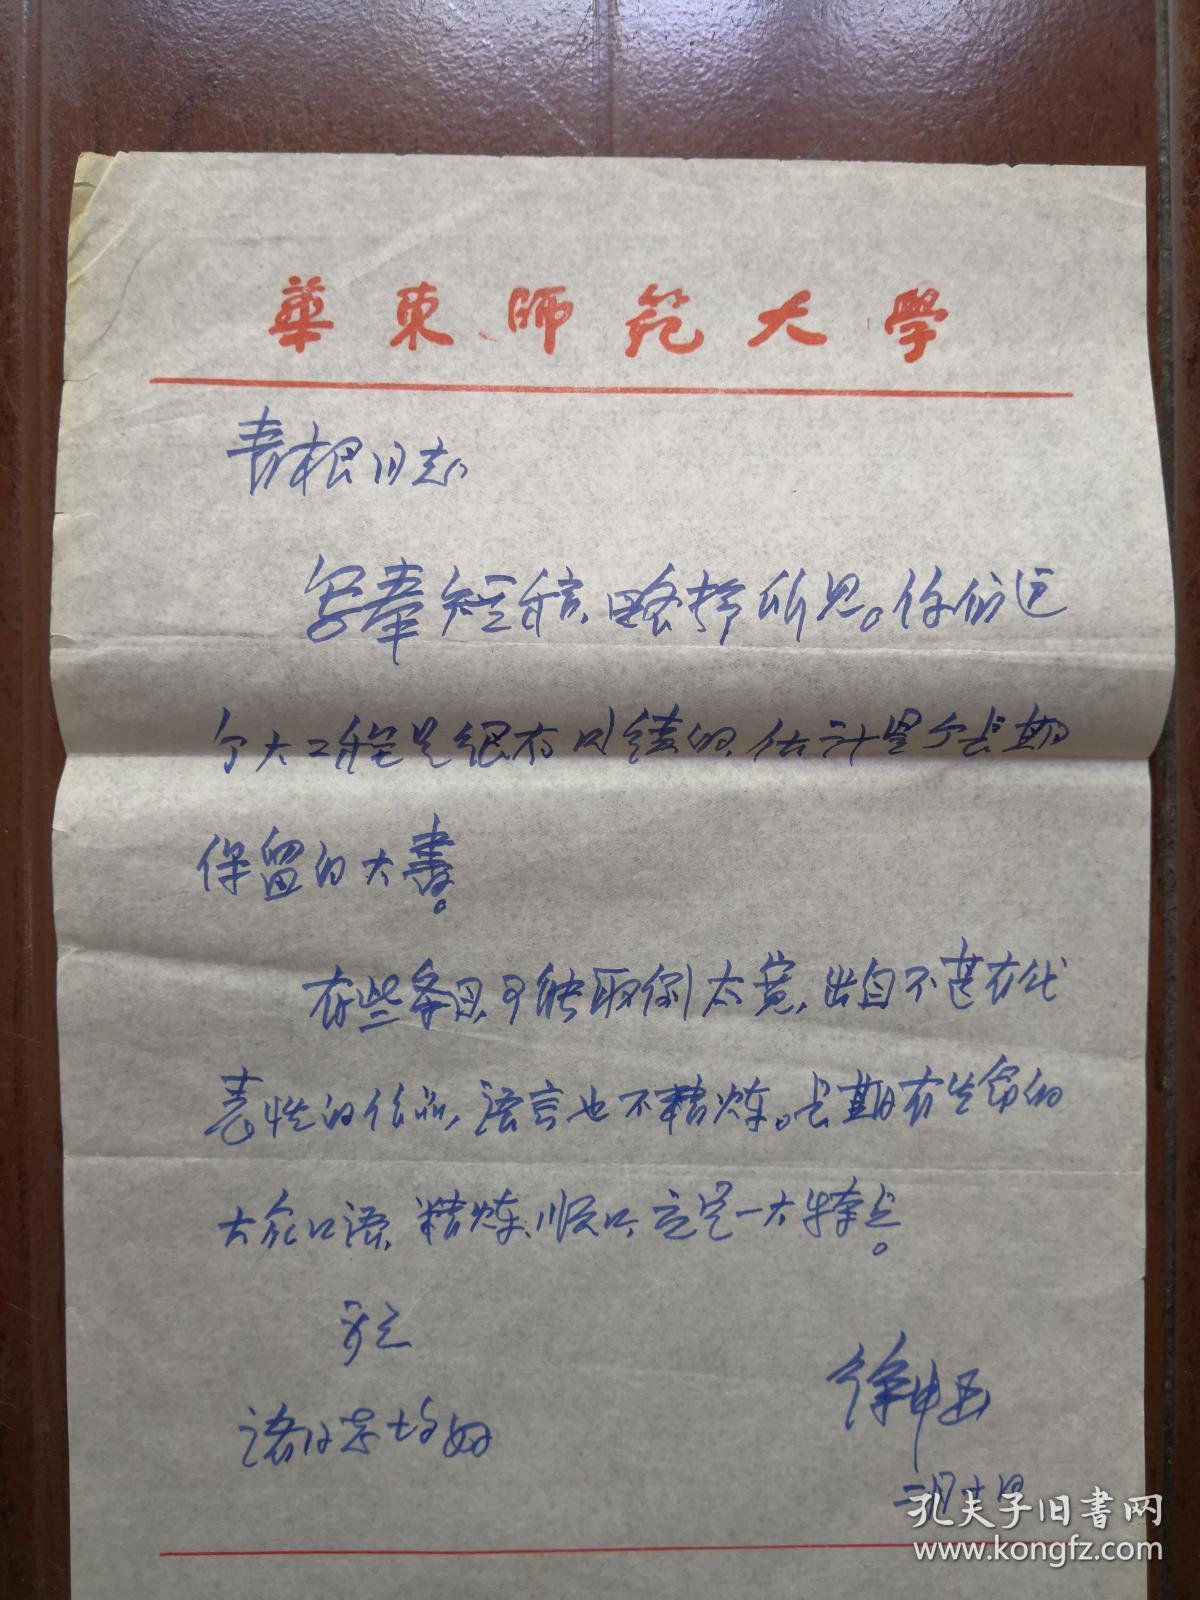 華東師範大學
春根同志,
写奉短稿、略抒所见。你们这
个大工程是很有成绩的,估计是个长期
保留的大書。
有些条目,可能取例太宽,出自不甚有代
表性的作品,语言也不精炼。长期有生命的
大众口语,精炼、顺口,应是一大特点。
齐之
诸同志均好
徐中玉
二月十日
孔夫子旧書网
www.kongfz.com